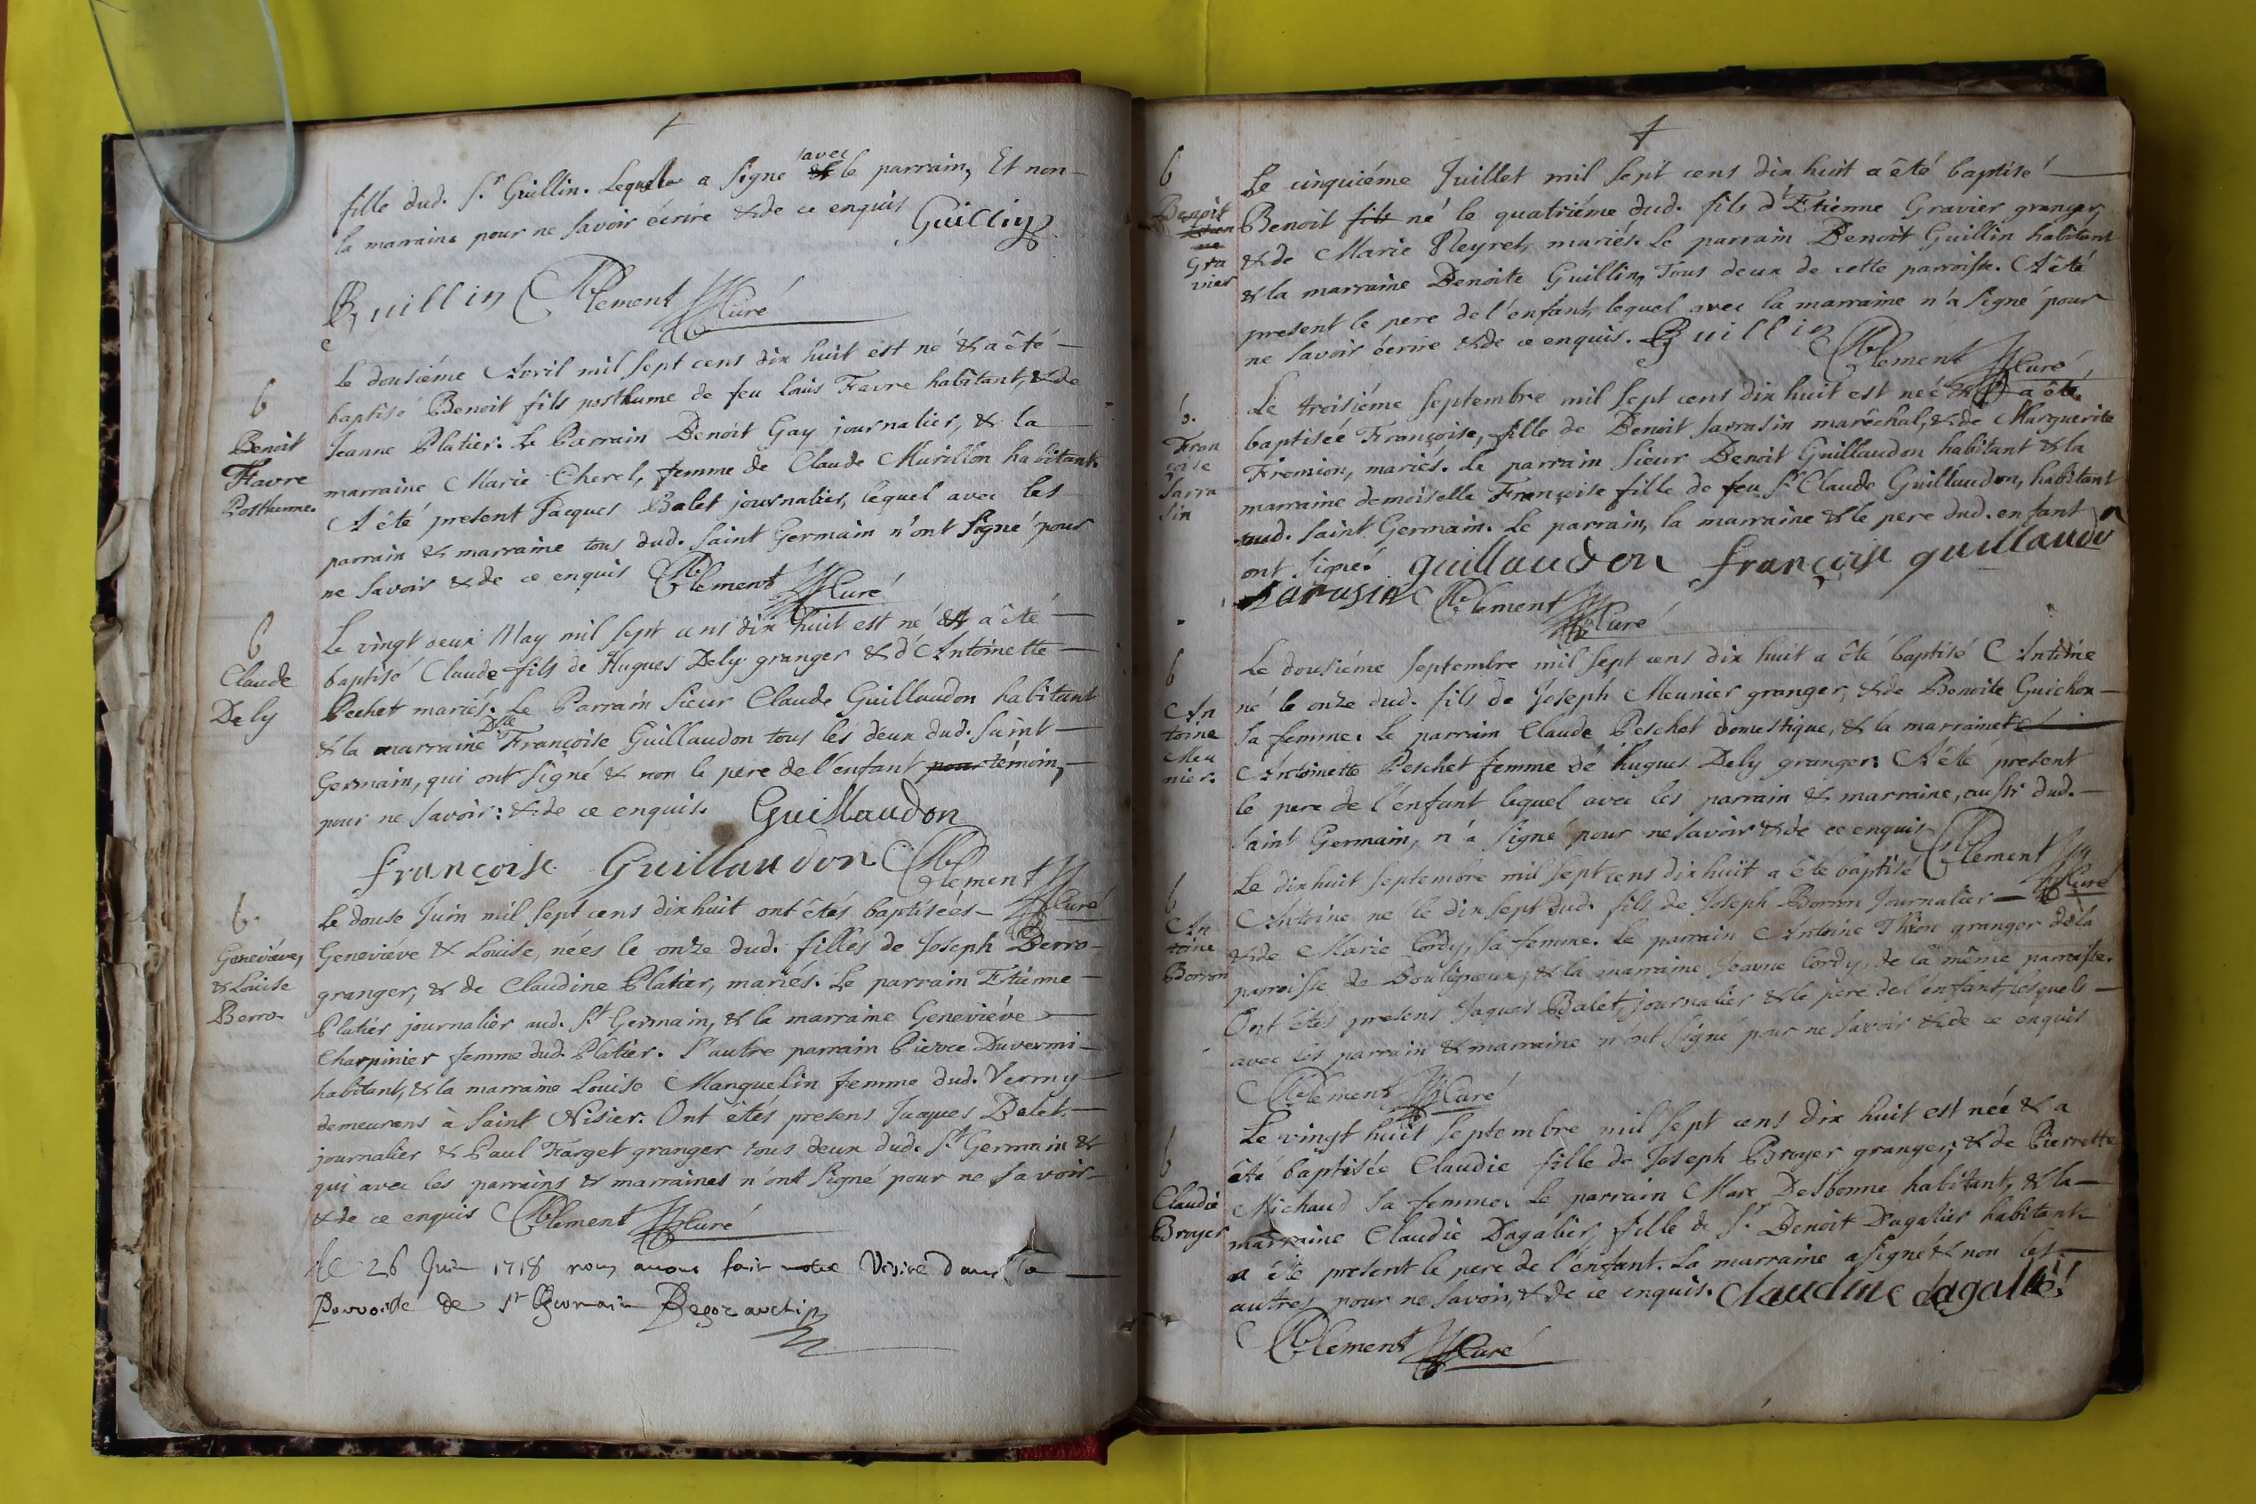 fille dud. Sr Guillin. Lequel a signé avec le parrain, Et non
la marraine pour ne savoir écrire &de ce enquis Guillin
Guillin Clement Curé
Le dousiéme Avril mil sept cens dix huit est né & a êté
b
baptisé Benoit fils posthume de feu Loüis Favre habitant, &de
Benoit
Favre
Posthume.
Jeanne Platier. Le Parrain Benoit Gay journalier, & la
marraine Marie Cherel, femme de Claude Murillon habitant.
A êté present Jacques Balet journalier, lequel avec les
parrain & marraine tous dud. Saint Germain n'ont signé pour
ne savoir &de ce enquis Clement Curé
b
Claude
Dely
Le vingt deux May mil sept cens dix huit est né & a êté
baptisé Claude fils de Hugues Dely granger & d'Antoinette
Pechet mariés. Le Parrain Sieur Claude Guillaudon habitant
& la marraine Dlle Françoise Guillaudon tous les deux dud. Saint
Germain, qui ont signé & non le pere de l'enfant pour témoin,
pour ne savoir: &de ce enquis. Guillaudon
françoise Guillaudon Clement Curé
b.
Geneviéve,
& Loüise
Berro
Le douse Juin mil sept cens dix huit ont êtés baptisées
Geneviéve & Loüise, nées le onze dud. filles de Joseph Berro
granger, & de Claudine Platier, mariés. Le parrain Etienne
Platier journalier aud. St Germain, & la marraine Geneviéve
Charpinier femme dud. Platier. L'autre parrain Pierre Duvermi
habitant, & la marraine Loüise Manguelin femme dud. Vermy
demeurans à Saint Nisier. Ont êtés presens Jaques Balet
journalier & Paul Farget granger tous deux dud. St Germain &
qui avec les parrains & marraines n'ont signé pour ne savoir
&de ce enquis Clement Curé
le 26 Juin 1718 nous avons fait notre Visite dans la
Parroisse de St Germain
b
Benoit
Etien
ne
Gra
vier
Le cinquiéme Juillet mil sept cens dix huit a êté baptisé
Benoit fils né le quatriéme dud. fils d'Etienne Gravier granger,
&de Marie Neyret, mariés. Le parrain Benoit Guillin habitant
& la marraine Benoite Guillin, tous deux de cette parroisse. A êté
present le pere de l'enfant, lequel avec la marraine n'a signé pour
ne savoir écrire &de ce enquis. Guillin Clement Curé
b.
Fran
çoise
Sarra
sin
Le troisiéme Septembre mil sept cens dix huit est née & a êté
baptisée Françoise, fille de Benoit Sarrasin maréchal, &de Marguerite
Fremion, mariés. Le parrain Sieur Benoit Guillaudon habitant & la
marraine demoiselle Françoise fille de feu Sr Claude Guillaudon, habitant
aud. Saint Germain. Le parrain, la marraine & le pere dud. enfant
ont signé. guillaudon françoise guillaudon
Sarasin Clement Curé
b
An
toine
Meu
nier.
Le dousiéme Septembre mil sept cens dix huit a êté baptisé Antoine
né le onze dud. fils de Joseph Meunier granger, &de Benoite Guichon
sa femme. Le parrain Claude Peschet domestique, & la marraine
Antoinette Peschet femme de Hugues Dely granger. A êté present
le pere de l'enfant lequel avec les parrain & marraine, aussi dud.
Saint Germain, n'a signé pour ne savoir &de ce enquis Clement Curé
b
An
toine
Borron
Le dix huit Septembre mil sept cens dix huit a êté baptisé
Antoine né le dix sept dud. fils de Joseph Borron Journalier
&de Marie Cordy, sa femme. Le parrain Antoine Thion granger de la
parroisse de Bouligneux, & la marraine Jeanne Cordy, de la même parroisse.
Ont êtés presens Jaques Balet, journalier & le pere de l'enfant, lesquels
avec les parrain & marraine n'ont signé pour ne savoir &de ce enquis
Clement Curé
b
Claudie
Broyer
Le vingt huit Septembre mil sept cens dix huit est née & a
êté baptisée Claudie fille de Joseph Broyer granger, & de Pierrette
Michaud sa femme. Le parrain Marc Desbonne habitant, & la
marraine Claudie Dagalier, fille de Sr Benoit Dagalier habitant
a êté present le pere de l'enfant. La marraine a signé & non les
autres pour ne savoir, &de ce enquis. Claudine dagallié
Clement Curé